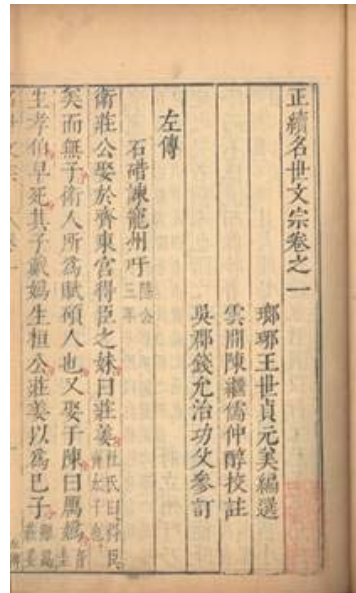 正續名世文宗卷之一
瑯琊王世貞元美編選
雲間陳繼儒仲醇挍註
吳郡錢允治功父參訂
左傳
石碏諫寵州吁 隱公三年
衛莊公娶於齊東宮得臣之妹曰莊姜
矣而無子衛人所爲賦碩人也又娶于陳曰厲嬀
生孝伯早死其子戴嬀生桓公莊姜以爲已子